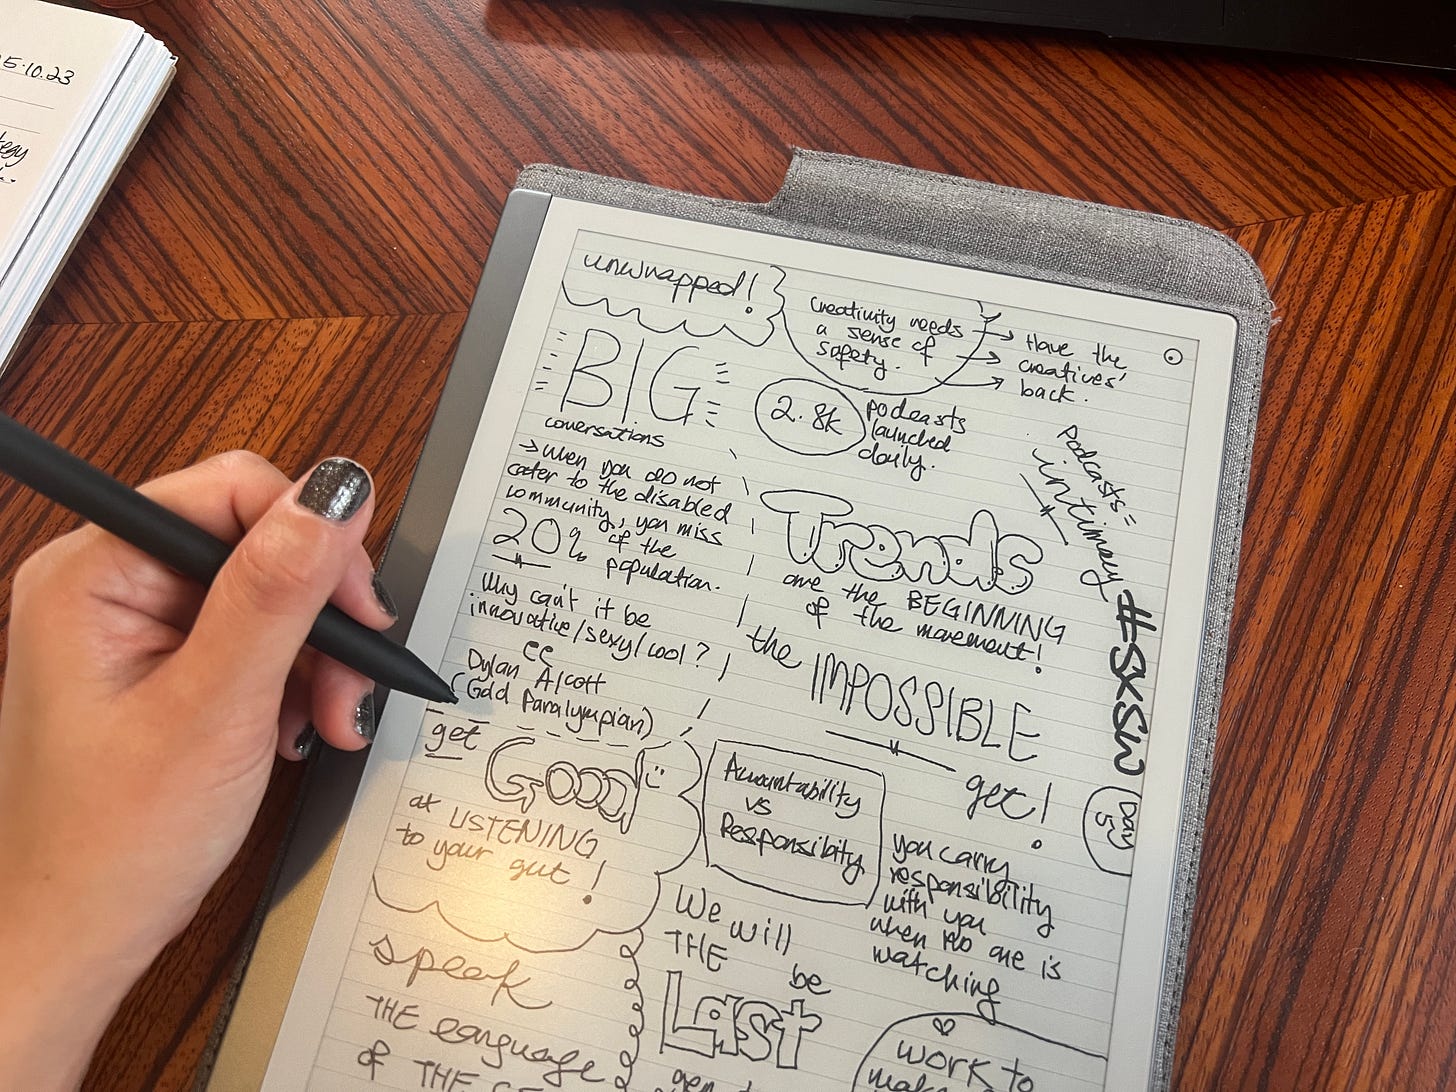 5.10.23
unwrapped!
Creativity needs
a sense of
safety.
Have the
creatives'
back.
BIG
conversations
→ when you do not
cater to the disabled
community, you miss
20% of the
population.
Why can't it be
innovative/sexy/cool?
Dylan Alcott
(Gold Paralympian)
2.8k
podcasts
launched
daily.
Podcasts =
intimacy
#SXSW
Day
5
Trends
are the BEGINNING
of the movement!
the IMPOSSIBLE
get!
get
GOOD
at LISTENING
to your gut!
Accountability
vs
Responsibility
you carry
responsibility
with you
when no one is
watching
We will
THE be
Last
speak
THE language
of THE
work to